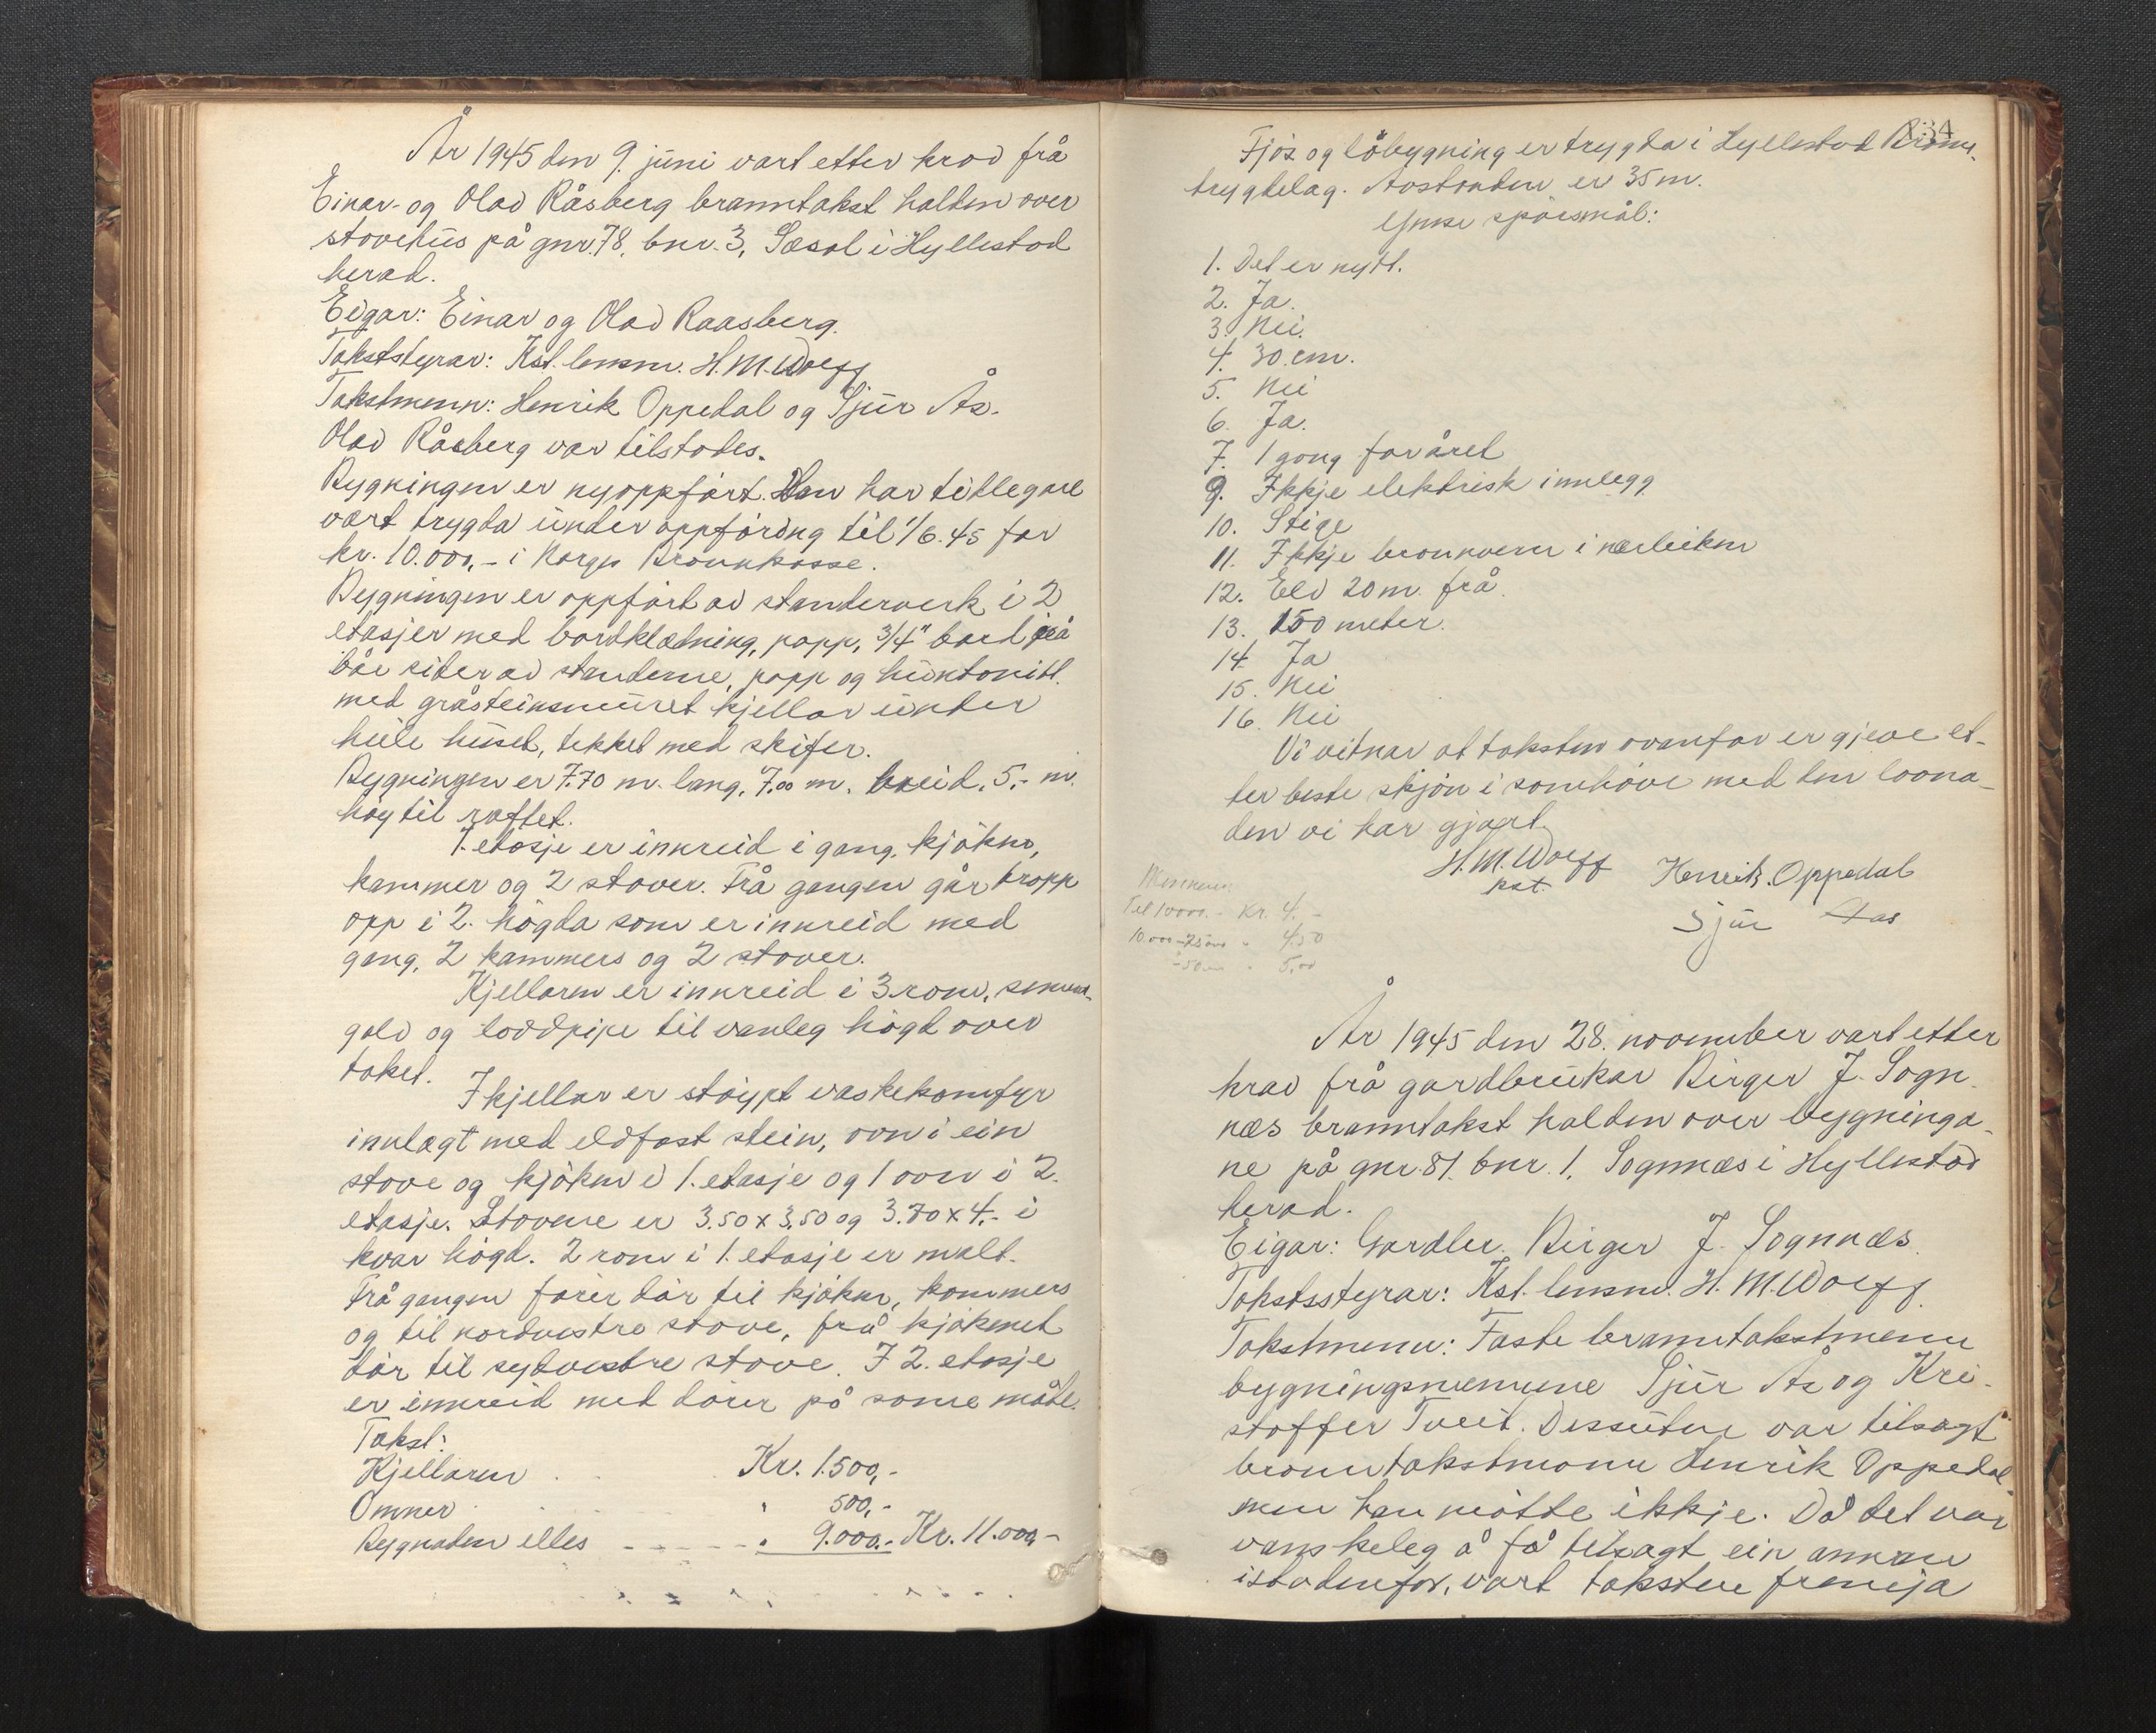 År 1945 den 9. juni vart etter krav frå
Einar- og Olav Råsberg branntakst halden over
stovehus på gnr. 78, bnr. 3, Sæsol i Hyllestad
herad.
Eigar: Einar og Olav Raasberg.
Takststyrar: Kst. lensm. H. M. Wolff
Takstmenn: Henrik Oppedal og Sjur Ås.
Olav Råsberg var tilstades.
Bygningen er nyoppført. Den har tidlegare
vært trygda under oppføring til 1/6.45 for
kr. 10.000,- i Norges Brannkasse.
Bygningen er oppført av standerverk i 2
etasjer med bordklædning, papp, 3/4" bord på
båe sider av standerne, papp og huntonitt.
med gråsteinsmuret kjellar under
heile huset, tekket med skifer.
Bygningen er 7.70 m. lang, 7.00 m. breid, 5,- m.
høg til raftet.
1. etasje er innreid i gang, kjøken,
kammer og 2 stover. Frå gangen går tropp
opp i 2. høgda som er innreid med
gang, 2 kammers og 2 stover.
Kjellaren er innreid i 3 rom, sement-
golv og loddpipe til vanleg høgd over
taket.
I kjellar er støypt vaskekomfyr
innlagt med eldfast stein, ovn i ein
stove og kjøken i 1. etasje og 1 ovn i 2.
etasje. Stovene er 3.50 x 3.50 og 3.70 x 4,- i
kvar høgd. 2 rom i 1. etasje er malt.
Frå gangen fører dør til kjøken, kammers
og til nordvestre stove, frå kjøkenet
dør til sydvestre stove. I 2. etasje
er innreid med dører på same måte.
Takst:
Kjellaren . . Kr. 1.500,-
Omner . . . " 500,-
Bygnaden elles - - - - " 9.000.- Kr. 11.000,-
234
Fjøs og løbygning er trygda i Hyllestad Brann-
trygdelag. Avstanden er 35 m.
Ymse spørsmål:
1. Det er nytt.
2. Ja.
3. Nei.
4. 30 cm.
5. Nei
6. Ja.
7. 1 gong for året
9. Ikkje elektrisk innlegg
10. Stige
11. Ikkje brannvern i nærleiken
12. Elv 20 m. frå.
13. 150 meter.
14. Ja
15. Nei
16. Nei
Vi vitnar at taksten ovanfor er gjeve et-
ter beste skjøn i somhøve med den lovna-
den vi har gjort.
H. M. Wolff Henrik. Oppedal
kst.
Sjur Aas
Til 10000.- Kr. 4.-
10.000-25000 " 4.50
-50000 " 5.00
År 1945 den 28. november vart etter
krav frå gardbrukar Birger J. Sogn-
næs branntakst halden over bygninga-
ne på gnr. 81. bnr. 1, Sognnæs i Hyllestad
herad.
Eigar: Gardbr. Birger J. Sognnæs
Takstsstyrar: Kst. lensm. H. M. Wolff.
Takstmenn: Faste branntakstmenn
bygningsmennene Sjur Ås og Kri-
stoffer Tveit. Dessuten var tilsagt
branntakstmann Henrik Oppedal,
men han møtte ikkje. Då det var
vanskeleg å få tilsagt ein annan
istadenfor, vart taksten fremja